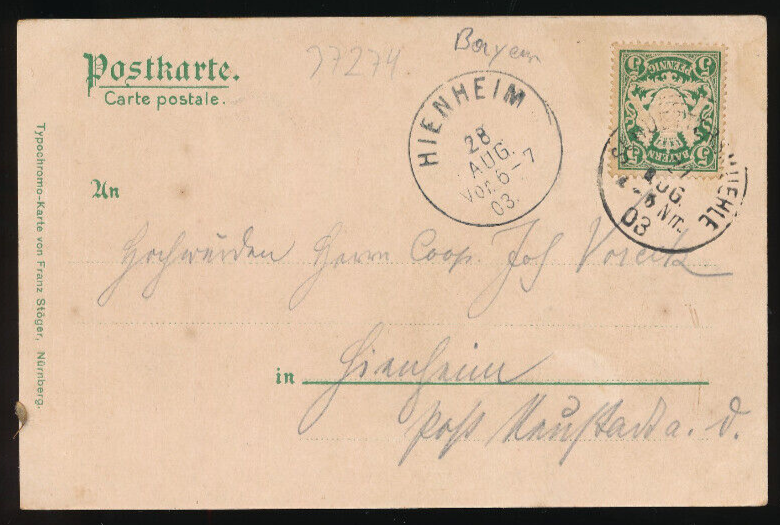 Postkarte.
Carte postale.
37274
Bayern
HIENHEIM
28
AUG.
Vor. 6-7
03.
5 PFENNIG 5
5 BAYERN 5
AUG.
NM.
03
An
Hochwürden Herrn Coop. Joh
in Hienheim
Post Neustadt a. d.
Typochromo-Karte von Franz Stöger, Nürnberg.